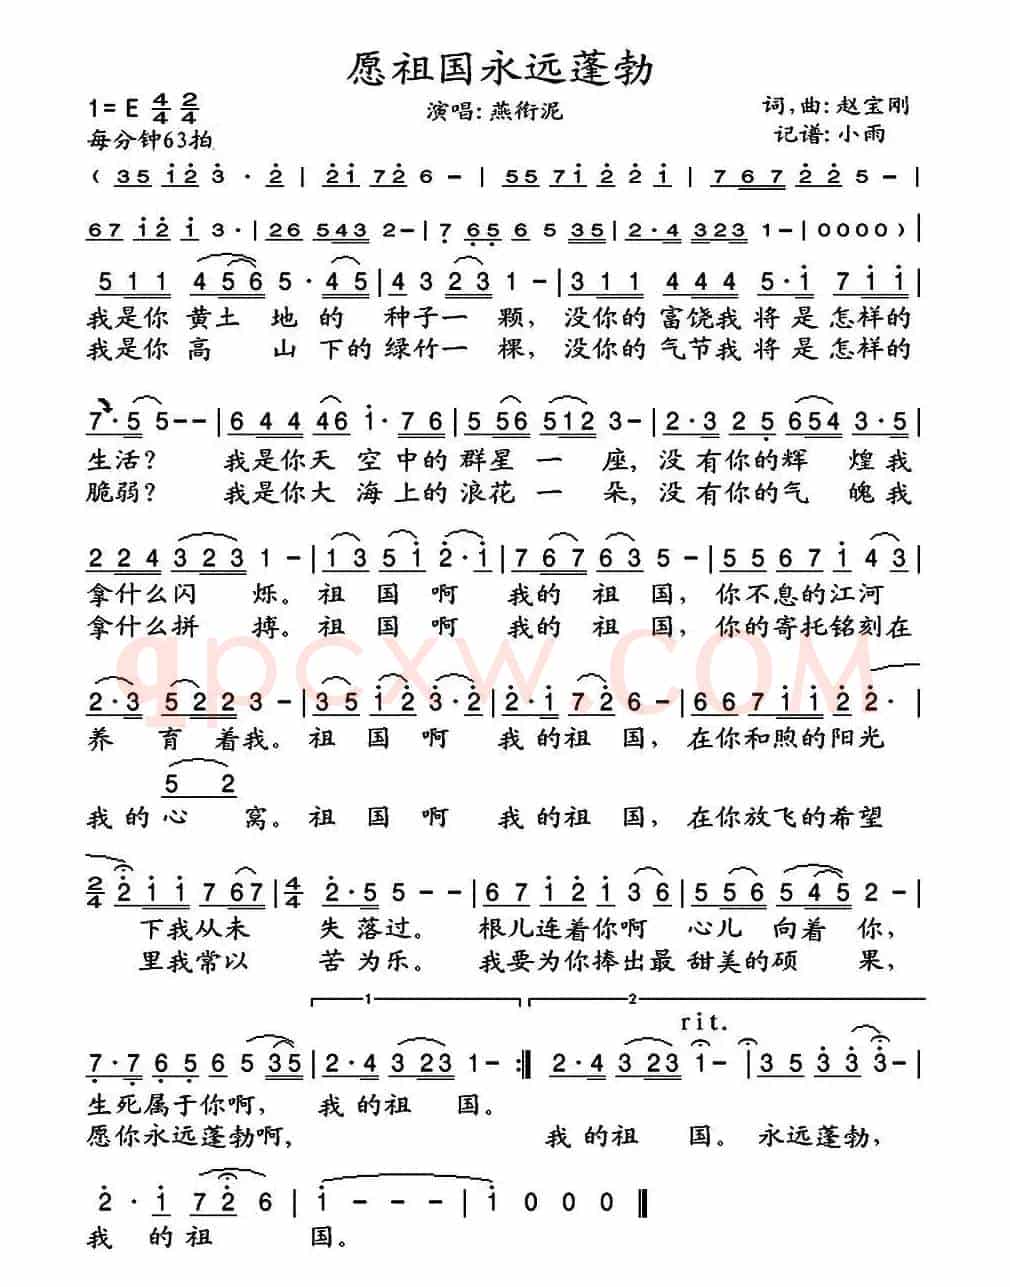 愿祖国永远蓬勃
1=E 4/4 2/4
演唱:燕衔泥
词,曲:赵宝刚
每分钟63拍
记谱:小雨
( 35 i2 3 · 2 | 2i 72 6 - | 55 7i 2 2 i | 7 6 7 2 2 5 - |
67 i2 i 3 · | 26 543 2 - | 7 65 6 5 35 | 2·4 323 1 - | 0000 ) |
5 1 1 4 5 6 5 · 4 5 | 4 3 2 3 1 - | 3 1 1 4 4 4 5 · i 7 i i |
我是你 黄土 地 的 种子一 颗, 没你的 富饶我 将 是 怎样的
我是你 高 山 下的 绿竹一 棵, 没你的 气节我 将 是 怎样的
7 · 5 5 - - | 6 4 4 4 6 i · 7 6 | 5 5 6 5 1 2 3 - | 2 · 3 2 5 6 5 4 3 · 5 |
生活? 我是你天 空中的 群星 一 座, 没 有你的辉 煌 我
脆弱? 我是你大 海上的 浪花 一 朵, 没 有你的气 魄 我
2 2 4 3 2 3 1 - | 1 3 5 i 2 · i | 7 6 7 6 3 5 - | 5 5 6 7 i 4 3 |
拿什么闪 烁。 祖 国 啊 我的 祖 国, 你不息的江河
拿什么拼 搏。 祖 国 啊 我的 祖 国, 你的寄托铭刻在
qpcxw.COM
2 · 3 5 2 2 3 - | 3 5 i 2 3 · 2 | 2 · i 7 2 6 - | 6 6 7 i i 2 2 · |
养 育 着我。 祖 国 啊 我 的祖 国, 在你和煦的阳光
5 2
我 的 心 窝。 祖 国 啊 我 的祖 国, 在你放飞的希望
2/4 2 i i 7 6 7 | 4/4 2 · 5 5 - - | 6 7 i 2 i 3 6 | 5 5 6 5 4 5 2 - |
下我从未 失 落过。 根儿连着你啊 心儿 向着 你,
里我常以 苦 为乐。 我要为你捧出最 甜美的硕 果,
1 2
rit.
7 · 7 6 5 6 5 3 5 | 2 · 4 3 2 3 1 - :‖ 2 · 4 3 2 3 1 - | 3 5 3 3 3 - |
生死属于你啊, 我 的祖 国。
愿你永远蓬勃啊, 我 的祖 国。 永远蓬勃,
2 · i 7 2 6 | i - - - | i 0 0 0 ‖
我 的 祖 国。